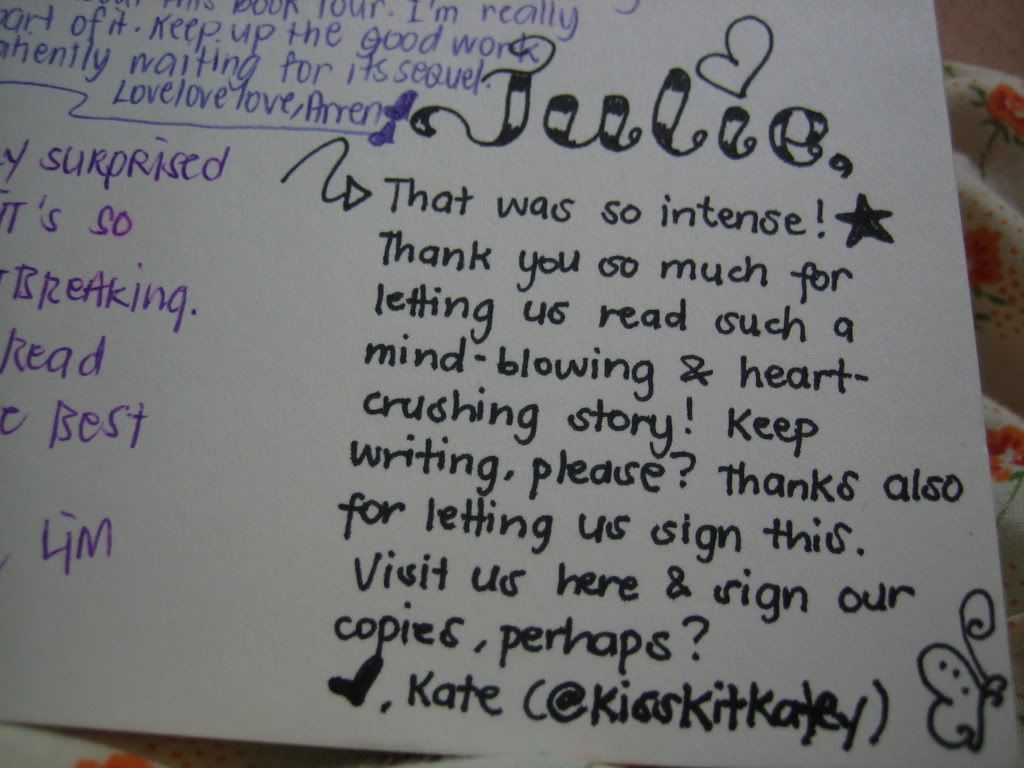 this book tour. I'm really
part of it. Keep up the good work
waiting for its sequel.
Lovelovelove, Arren
surprised
iT's so
BReAking.
Read
Best
LiM
Julie,
That was so intense!
Thank you so much for
letting us read such a
mind-blowing & heart-
crushing story! Keep
writing, please? Thanks also
for letting us sign this.
Visit us here & sign our
copies, perhaps?
, Kate (@kisskitkatey)